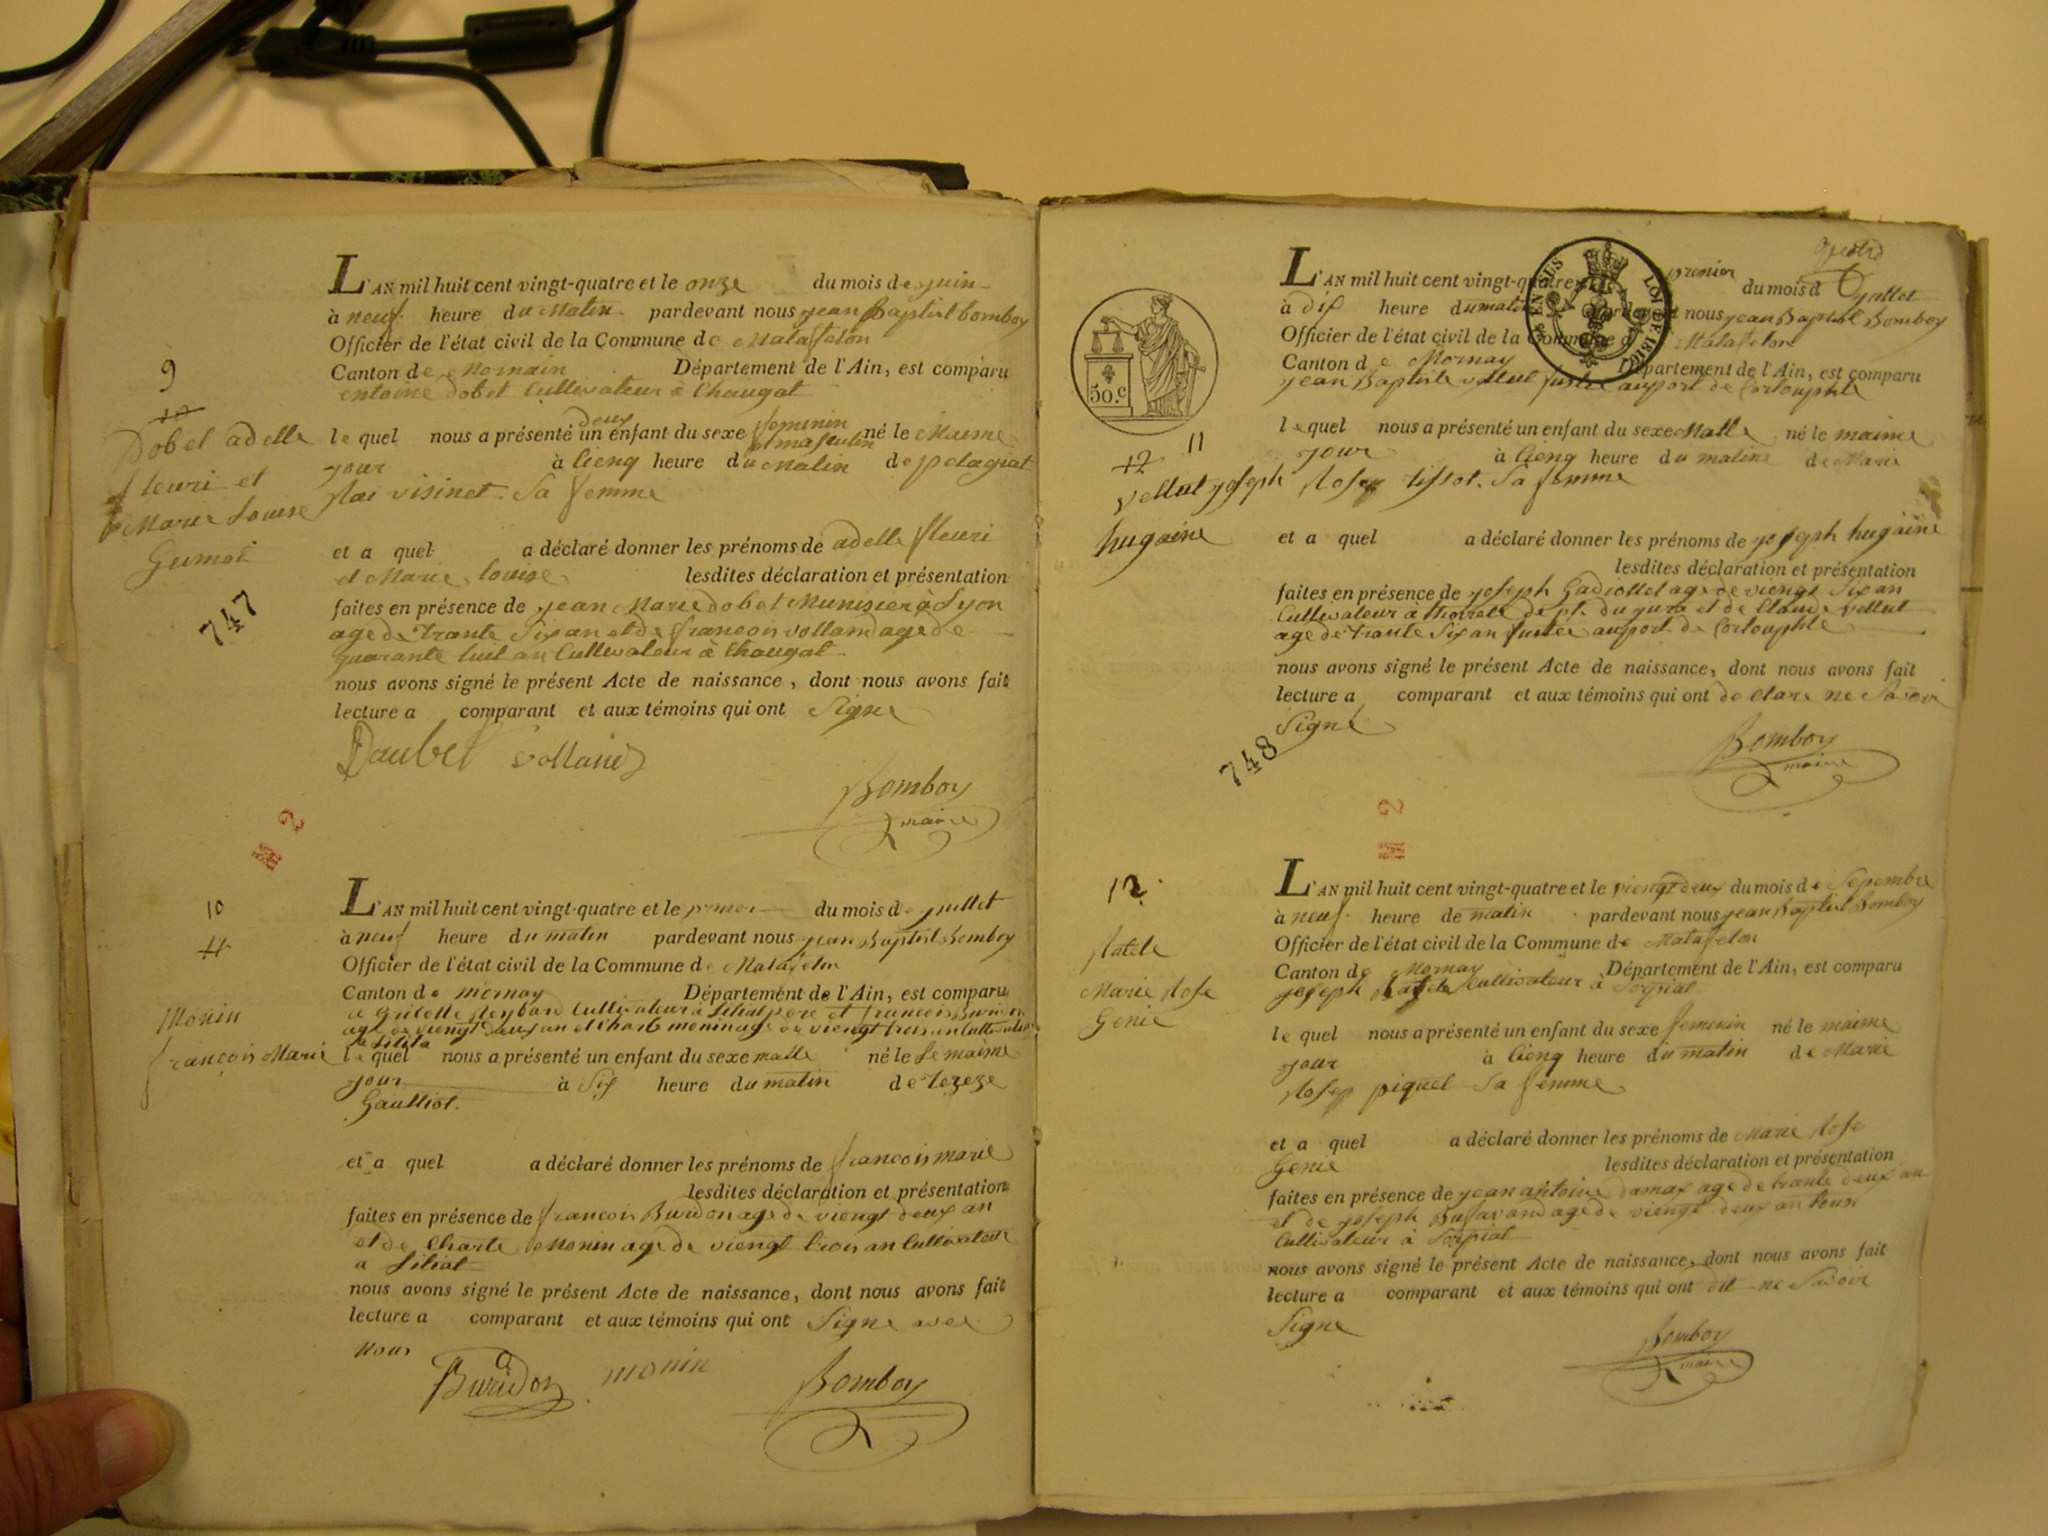 L'AN mil huit cent vingt-quatre et le onze du mois de juin
à neuf heure du Matin pardevant nous jean Baptist bomboy
Officier de l'état civil de la Commune de Matafelon
Canton de Mornain Département de l'Ain, est comparu
entoine dobet Cultivateur à Chaugat
9
12
Dobet adelle
fleuri et
Marie Louise
Gumot
747
deux
le quel nous a présenté un enfant du sexe feminin né le Maime
et masculin
jour à cienq heure du Matin de pelagiat
visinet Sa femme
et a quel a déclaré donner les prénoms de adelle fleuri
et Marie louise lesdites déclaration et présentation
faites en présence de jean Marie dobet Munisier à Lyon
age de trante Six an et de francois volland age de
quarante huit an Cultivateur à Chaugat
nous avons signé le présent Acte de naissance, dont nous avons fait
lecture a comparant et aux témoins qui ont Signe
Daubet volland
Bomboy
maire
2
10
11
Monin
françois Marie
L'AN mil huit cent vingt-quatre et le premier du mois de juillet
à neuf heure du matin pardevant nous jean Baptist Bomboy
Officier de l'état civil de la Commune de Matafelon
Canton de mornay Département de l'Ain, est comparu
Cultivateur à Siliat et francois Buridon
age de viengt deux an et Charle monin age de viengt trois an Cultivateur
le quel nous a présenté un enfant du sexe malle né le Le maime
jour à Six heure du matin de tereze
Gaulliot.
et a quel a déclaré donner les prénoms de francois marie
lesdites déclaration et présentation
faites en présence de francois Buridon age de viengt deux an
et de Charle Monin age de viengt trois an Cultivateur
a Siliat
nous avons signé le présent Acte de naissance, dont nous avons fait
lecture a comparant et aux témoins qui ont Signe avec
nous
Buridon monin Bomboy
L'AN mil huit cent vingt-quatre premier du mois d juillet
à dix heure du matin pardevant nous jean Baptist Bomboy
Officier de l'état civil de la Commune d Matafelon
Canton de Mornay Département de l'Ain, est comparu
jean Baptiste vellut fustie auport de Corlouphle
EN SUS LOI DE 1816
50.c
11
12
vellut joseph
hugaine
748
le quel nous a présenté un enfant du sexe Malle né le maime
jour à cienq heure du matine de Marie
Rose tissot. Sa femme
et a quel a déclaré donner les prénoms de joseph hugaine
lesdites déclaration et présentation
faites en présence de joseph Gadiollet age de viengt Six an
Cultivateur à dpt. du jura et de Claude vellut
age de trante Six an fustie auport de Corlouphle
nous avons signé le présent Acte de naissance, dont nous avons fait
lecture a comparant et aux témoins qui ont de clare ne Savoir
Signé
Bomboy
maire
2
12
Marie Rose
Genie
L'AN mil huit cent vingt-quatre et le viengt deux du mois de Sepembre
à neuf heure de matin pardevant nous jean Baptist Bomboy
Officier de l'état civil de la Commune de Matafelon
Canton de Mornay Département de l'Ain, est comparu
joseph Cultivateur à Sorpiat
le quel nous a présenté un enfant du sexe feminin né le maime
jour à cienq heure du matin de Marie
Rose piquet Sa femme
et a quel a déclaré donner les prénoms de Marie Rose
Genie lesdites déclaration et présentation
faites en présence de jean antoine damax age de trante deux an
et de joseph Bussavand age de viengt deux an tous
Cultivateur à Sorpiat
nous avons signé le présent Acte de naissance, dont nous avons fait
lecture a comparant et aux témoins qui ont dit ne Savoir
Signe
Bomboy
maire